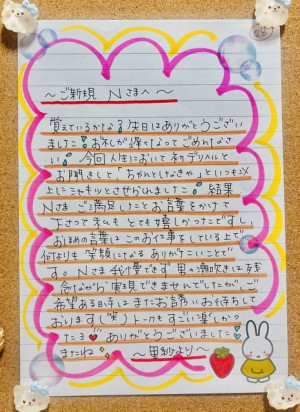 28
～ご新規 Nさまへ～
覚えているかな？先日はありがとうござい
ました！お礼が遅くなってごめんなさ
い。今回人生において初デリヘルと
お聞きして「ちゃんとしなきゃ」といつも以
上にシャキッとさせられました。結果
Nさま ご満足したとお言葉をかけて
下さって私もとても嬉しかったですし、
おほめの言葉はこのお仕事をしている上で
何よりも笑顔になるありがたいことで
す。Nさま 我慢できず 男の潮吹きは残
念ながら実現できませんでしたが、ご
希望ある日時はまたお誘いお待ちして
おります(笑)トークもすごい楽しかっ
たヨ ありがとうございました！
またね ～里紗より～